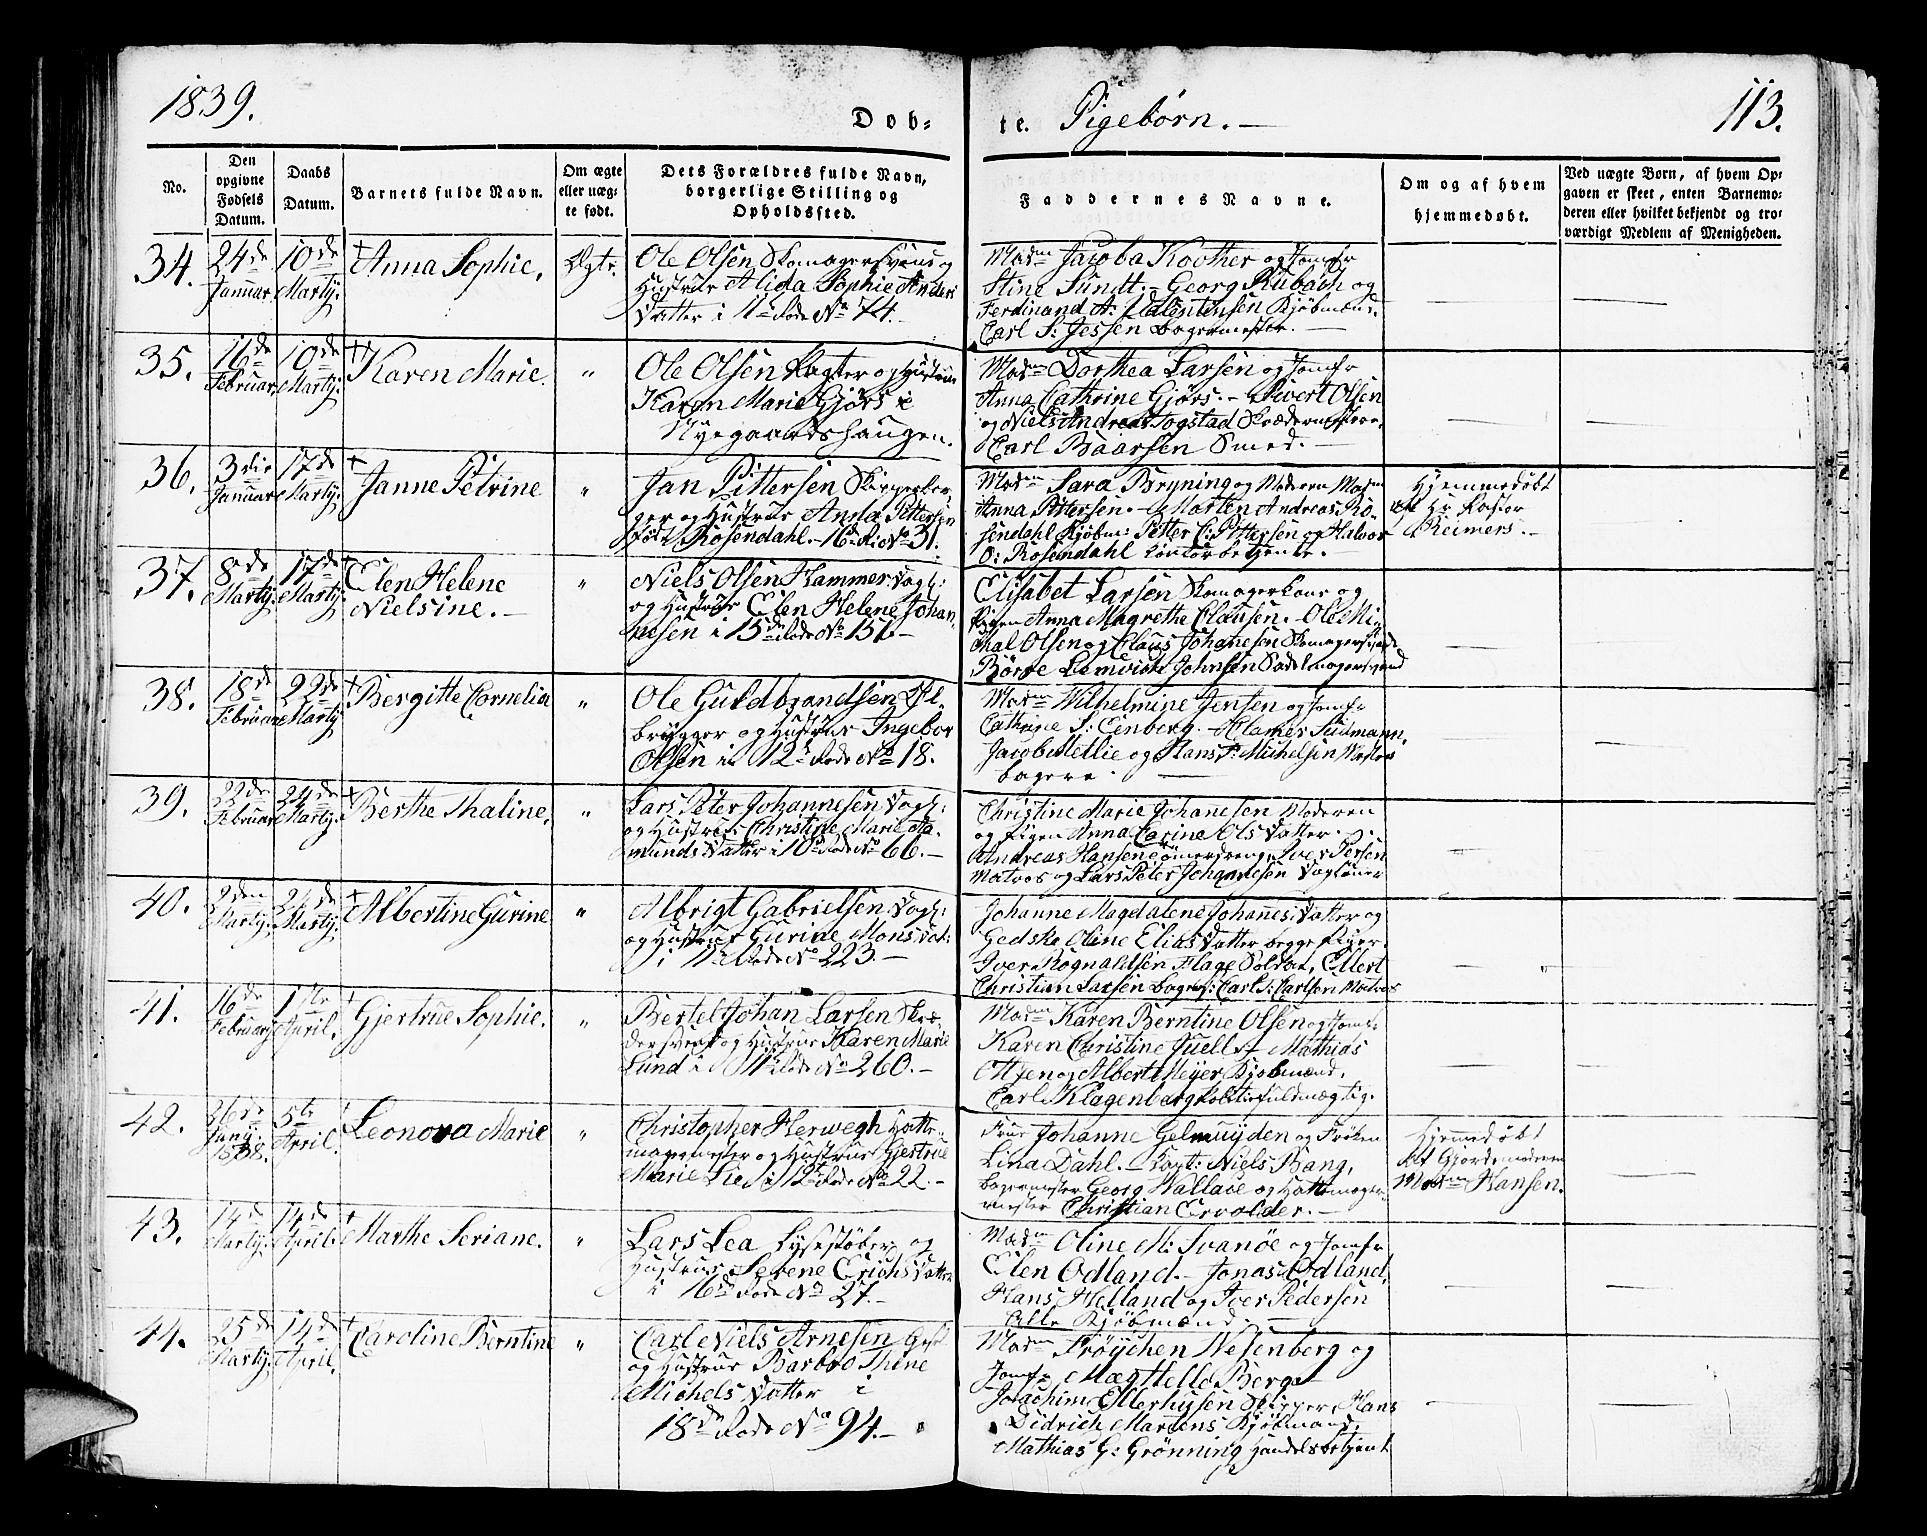 1839.
Dob-
te. Pigebørn. —
113.
No.
Den opgivne Fødsels Datum.
Daabs Datum.
Barnets fulde Navn.
Om ægte eller uæg-te født.
Dets Forældres fulde Navn, borgerlige Stilling og Opholdssted.
Faddernes Navne.
Om og af hvem hjemmedøbt.
Ved uægte Børn, af hvem Op-
gaven er skeet, enten Barnemo-
deren eller hvilket bekjendt og tro-
værdigt Medlem af Menigheden.
34. 24de Januar 10de Marty. Anna Sophie. Ægte.
Ole Olsen Skomagersvend og
Hustrue Alida Sophie Anders
Datter i 11te Rode No 74.
Madm Jacoba Kovther og Jomfr
Stine Sundt. – Georg Rubach og
Ferdinand A: Valentinsen Kjøbmænd.
Carl S: Jessen Bagermester. —
35. 16de Februar 10de Marty. Karen Marie. "
Ole Olsen Vagter og Hustrue
Karen Marie Gjørs i
Nyegaardshaugen.
Madm Dorthea Larsen og Jomfr
Anna Cathrine Gjørs. – Sivert Olsen
og Niels Andreas Togstad Skræddermestere,
Carl Baarsen Smed. —
36. 3die Januar 17de Marty. Janne Petrine "
Jan Pittersen Skipperbor-
ger og Hustrue Anna Pittersen
født Rosendahl. – 16de Ro No 31.
Madm Sara Bryning og Moderen Madm
Anna Pittersen. – Morten Andreas Ro-
sendahl Kjøbm: Petter C: Pittersen og Halvor
O: Rosendahl Contorbetjente.
Hjemmedøbt
af Hr Pastor
Reimers. —
37. 8de Marty. 17de Marty. Elen Helene
Nielsine. — "
Niels Olsen Hammer Dagl:
og Hustrue Elen Helene Johan-
nesen i 15de Rode No 151. —
Elisabet Larsen Skomagerkone og
Pigen Anna Magrethe Clausen. – Ole Mi-
chal Olsen og Claus Johanesen Skomagersvende
Børge Lemvich Johnsen Sadelmagersvend
38. 18de Februar 22de Marty Bergitte Cornelia "
Ole Guldbrandsen Øl-
brygger og Hustrue Ingebor
Olsen i 12te Rode No 18.
Madm Wilhelmine Jensen og Jomfr
Cathrine S: Eenberg. –
Jacob Mellie og Hans F: Michelsen
bagere. —
39. 22de Februar 24de Marty. Berthe Thaline. "
Lars Peter Johannesen Dagl:
og Hustrue Christine Marie Aa-
munds Datter i 10de Rode No 66. —
Christine Marie Johanesen Moderen
og Pigen Anna Carine Ols Datter.
Andreas Hansen Tømerdreng Iver Persen
Matros og Lars Peter Johannesen Dagløner
40. 2den Marty. 24de Marty. Albertine Gurine "
Albrigt Gabrielsen Dagl:
og Hustrue Gurine Mons Dat:
i 11te Rode No 223. —
Johanne Magdalene Johannes Datter og
Gedske Oline Elias Datter begge Piger.
Iver Rognaldsen Flage Soldat, Ellert
Christian Larsen Bager: Carl J: Carlsen Matros
41. 16de Februar 1ste April. Gjertrue Sophie. "
Bertel Johan Larsen Skræ-
dersvend og Hustrue Karen Marie
Lund i 11te Rode No 260. —
Madm Karen Berntine Olsen og Jomf:
Karen Christine Juell. – Mathias
Ottsen og Albert Meyer Kjøbmænd,
Carl Klagenberg Politiefuldmægtig.
42. 26de 1838. 5te April. Leonora Marie "
Christopher Herwegh Hatte-
magermester og Hustrue Gjertrue
Marie Lie i 12te Rode No 22. —
Frue Johanne Gelmuyden og Frøken
Lina Dahl. – Capt: Niels Bang,
Bagermester Georg Wallace og Hattemager-
mester Christian Ervolder. —
Hjemedøbt
af Gjordemoderen
Madm Hansen.
43. 14de Marty. 14de April. Marthe Seriane. "
Lars Lea Lysestøber og
Hustrue Serene Erichs Datter
i 16de Rode No 27. —
Madm Oline M: Svanøe og Jomfr
Elen Odland. – Jonas Odland,
Hans Helland og Iver Pedersen
Alle Kjøbmænd. —
44. 25de Marty. 14de April. Caroline Berntine "
Carl Niels Arnesen
og Hustrue Barbro Thine
Michels Datter i
18de Rode No 94. —
Madm Frøychen Wesenberg og
Jomfr Magthelle Berg. –
Joachim Ellerhusen Skipper, Hans
Didrich Martens Kjøbmand,
Mathias G: Grønning Handelsbetjent.